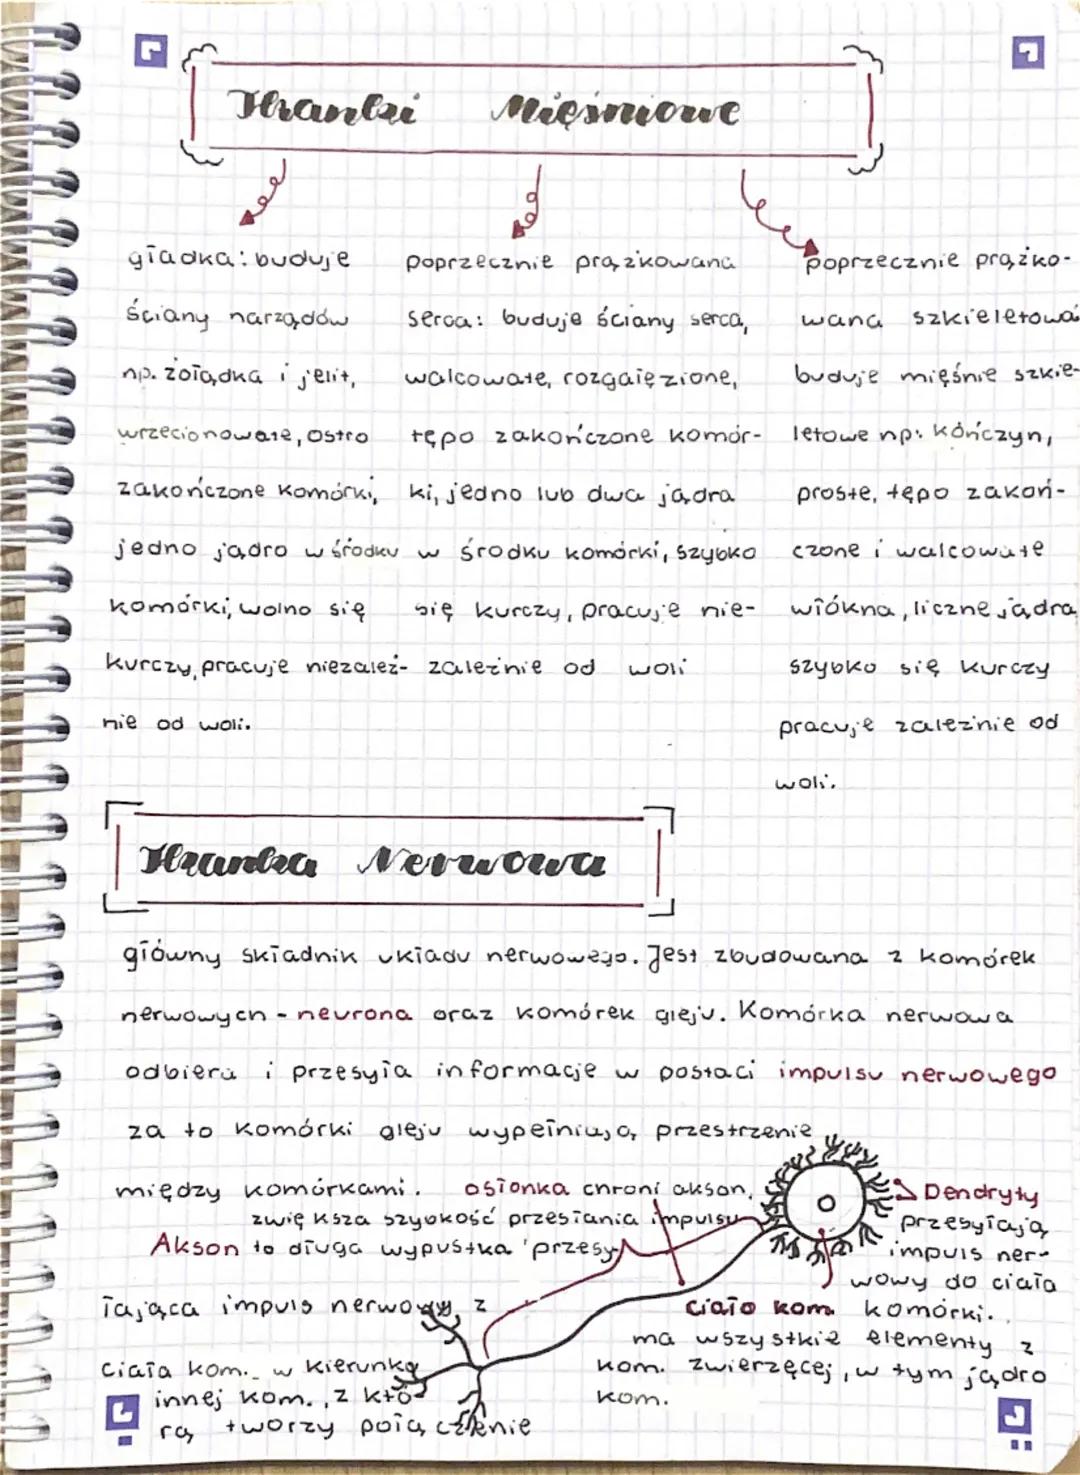 Tkanki Mięśniowe
gładka: buduje
ściany narządów
np. żołądka i jelit,
wrzecionowate, ostro
zakończone komórki,
jedno jądro w środku
komórki, wolno się
kurczy, pracuje niezależ-
nie od woli.
poprzecznie prążkowana
serca: buduje ściany serca,
walcowate, rozgałęzione,
tępo zakończone komór-
ki, jedno lub dwa jądra
w środku komórki, szybko
się kurczy, pracuje nie-
zależnie od woli
poprzecznie prążko-
wana szkieletowa
buduje mięśnie szkie-
letowe np. kończyn,
proste, tępo zakoń-
czone i walcowate
włókna, liczne jądra,
szybko się kurczy
pracuje zależnie od
woli.
Tkanka Nerwowa
główny składnik układu nerwowego. Jest zbudowana z komórek
nerwowych - neurona oraz komórek gleju. Komórka nerwowa
odbiera i przesyła informacje w postaci impulsu nerwowego
za to komórki gleju wypełniują przestrzenie
między komórkami.
osłonka chroni akson,
zwiększa szybkość przesłania impulsu
Akson to długa wypustka przesy-
łająca impuls nerwowy z
ciała kom. w kierunku
innej kom., z któ-
rą tworzy połączenie
Dendryty
przesyłają
impuls ner-
wowy do ciała
komórki.
ciało kom.
ma wszystkie elementy z
kom. zwierzęcej, w tym jądro
kom.